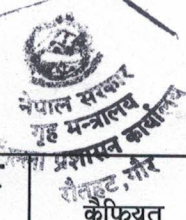 नेपाल सरकार
गृह मन्त्रालय
प्रशासन कार्यालय
रौतहट, गौर
कैफियत